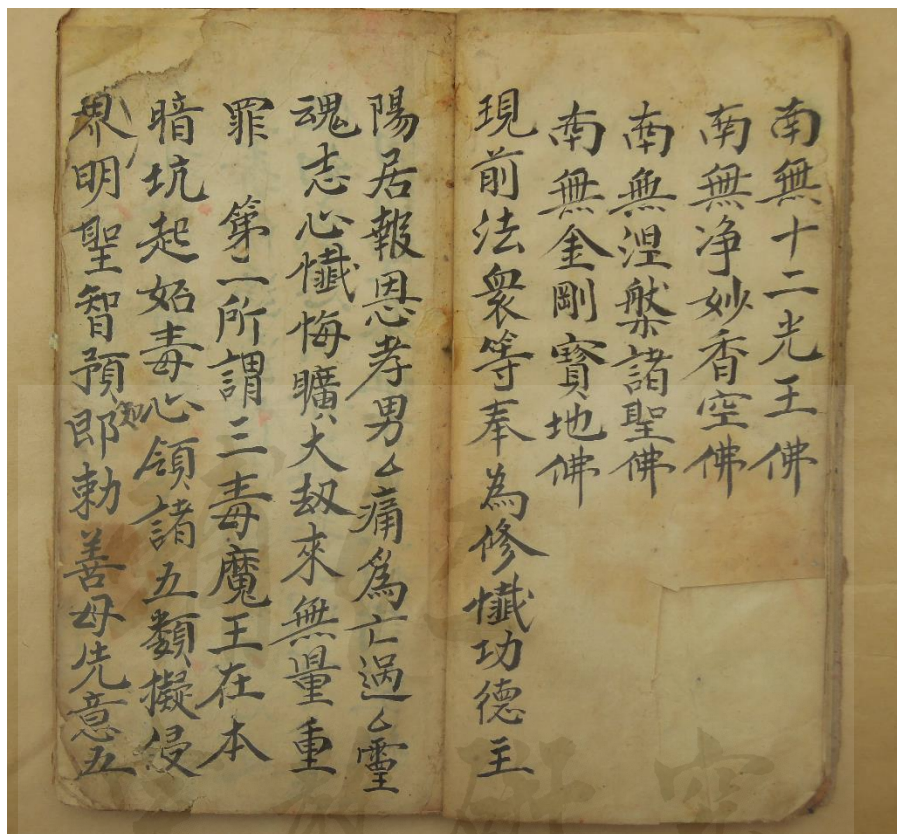 南無十二光王佛
南無净妙香空佛
南無涅槃諸聖佛
南無金剛寳地佛
現前法衆等奉為修懺功德主
陽居報恩孝男厶痛爲亡過厶靈
魂志心懺悔曠大劫來無量重
罪　第一所謂三毒魔王在本
暗坑起妬毒心領諸五類擬侵
界明聖智預知即勅善母先意五